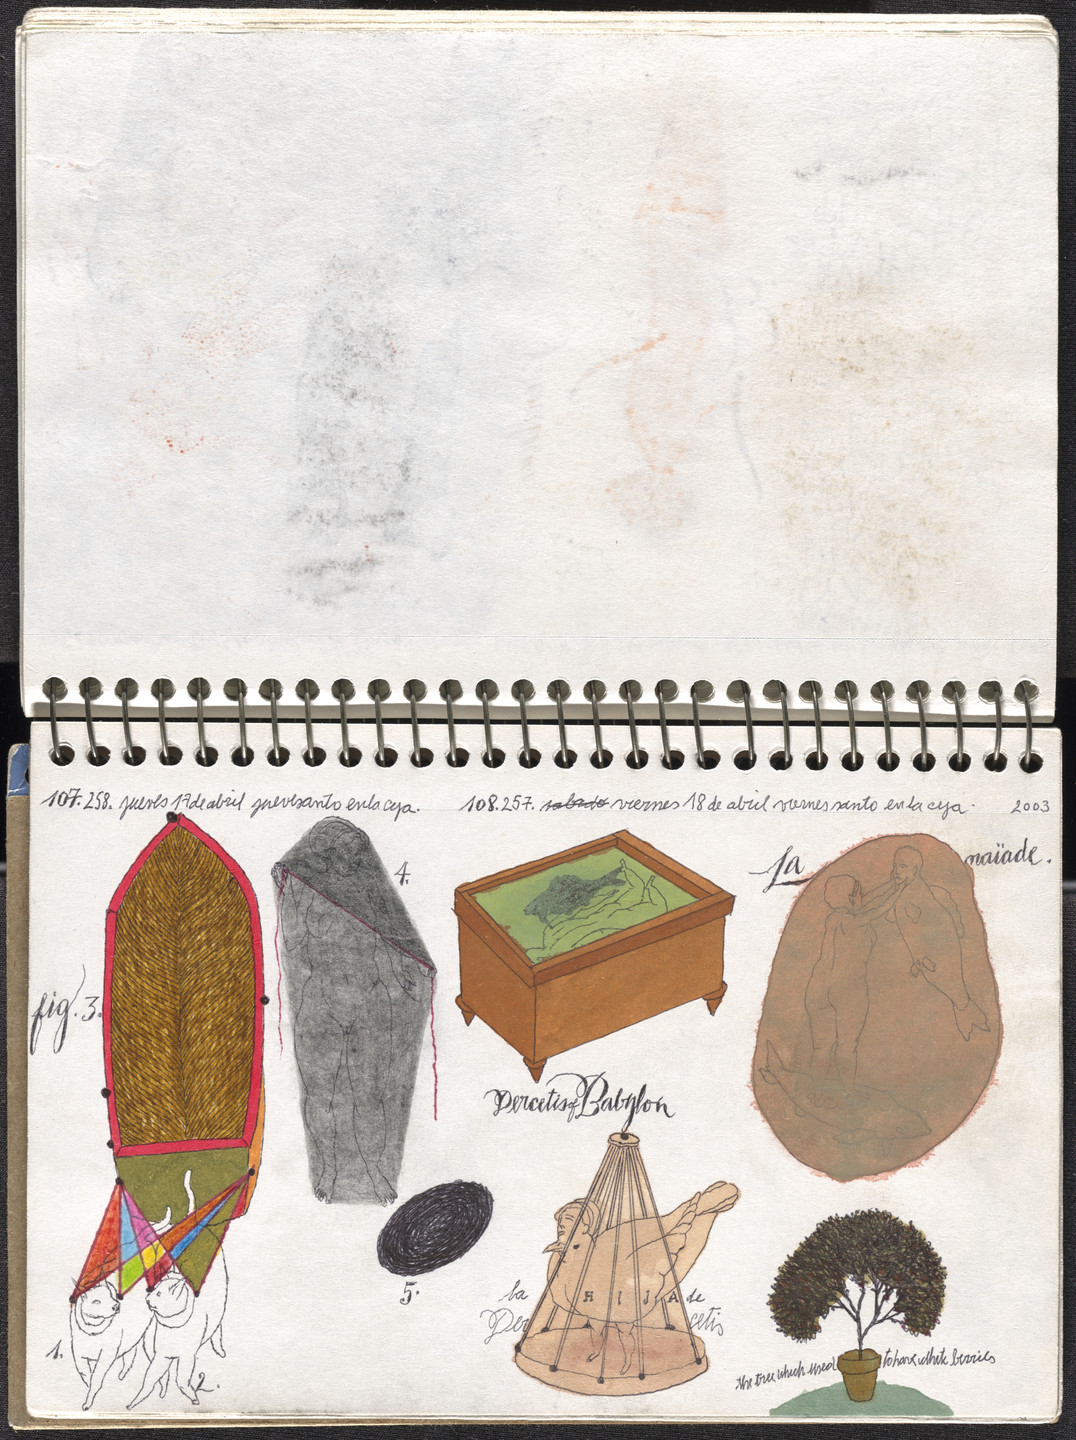 107.258. jueves 17 de abril juevesanto en la ceja.
108.257. sabado viernes 18 de abril viernes santo en la ceja.
2003
La naïade.
4.
fig. 3.
Dercetis of Babylon
5.
la HIJA de
Dercetis
1.
2.
the tree which used to have white berries